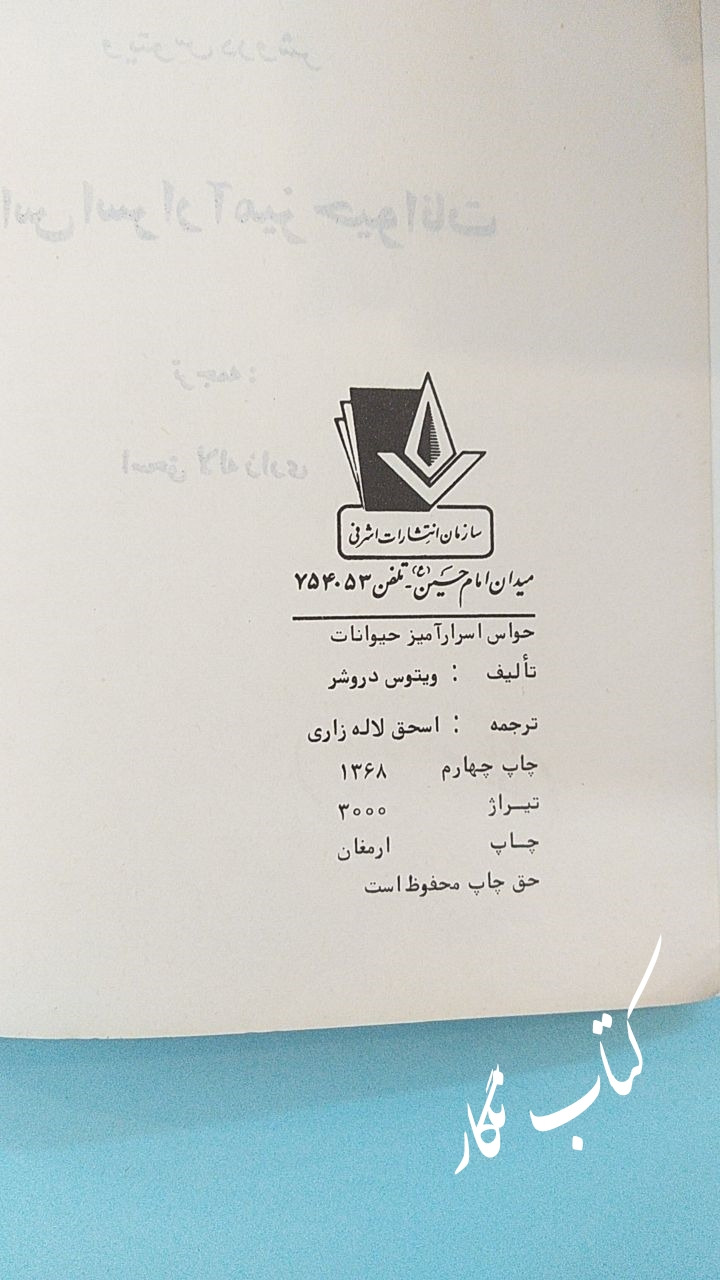 سازمان انتشارات اشرفی
میدان امام حسین (ع) ـ تلفن ۷۵۴۰۵۳
حواس اسرارآمیز حیوانات
تألیف : ویتوس دروشر
ترجمه : اسحق لاله زاری
چاپ چهارم ۱۳۶۸
تیــراژ ۳۰۰۰
چــاپ ارمغان
حق چاپ محفوظ است
کتاب نگار